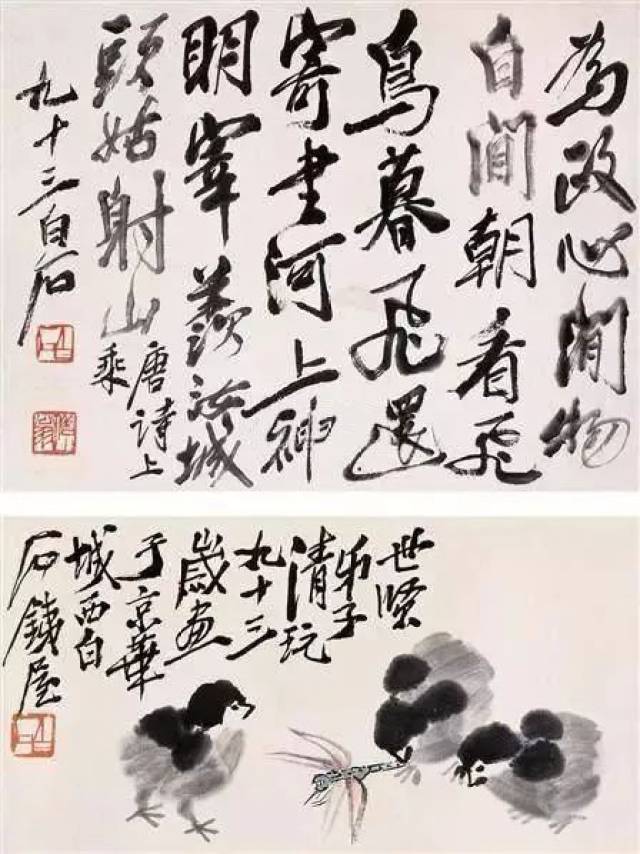 為政心閒物
自閒朝看飛
鳥暮飛還
寄書河上神
明宰羨汝城
頭姑射山
唐詩上
乘
九十三白石
世賢
弟子
清玩
九十三
歲畫
于京華
城西白
石鐵屋